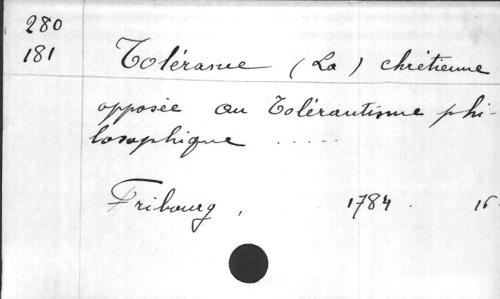 280
181
Tolérance (La) chrétienne
opposée au Tolérantisme phi-
losophique .....
Fribourg, 1784. 16